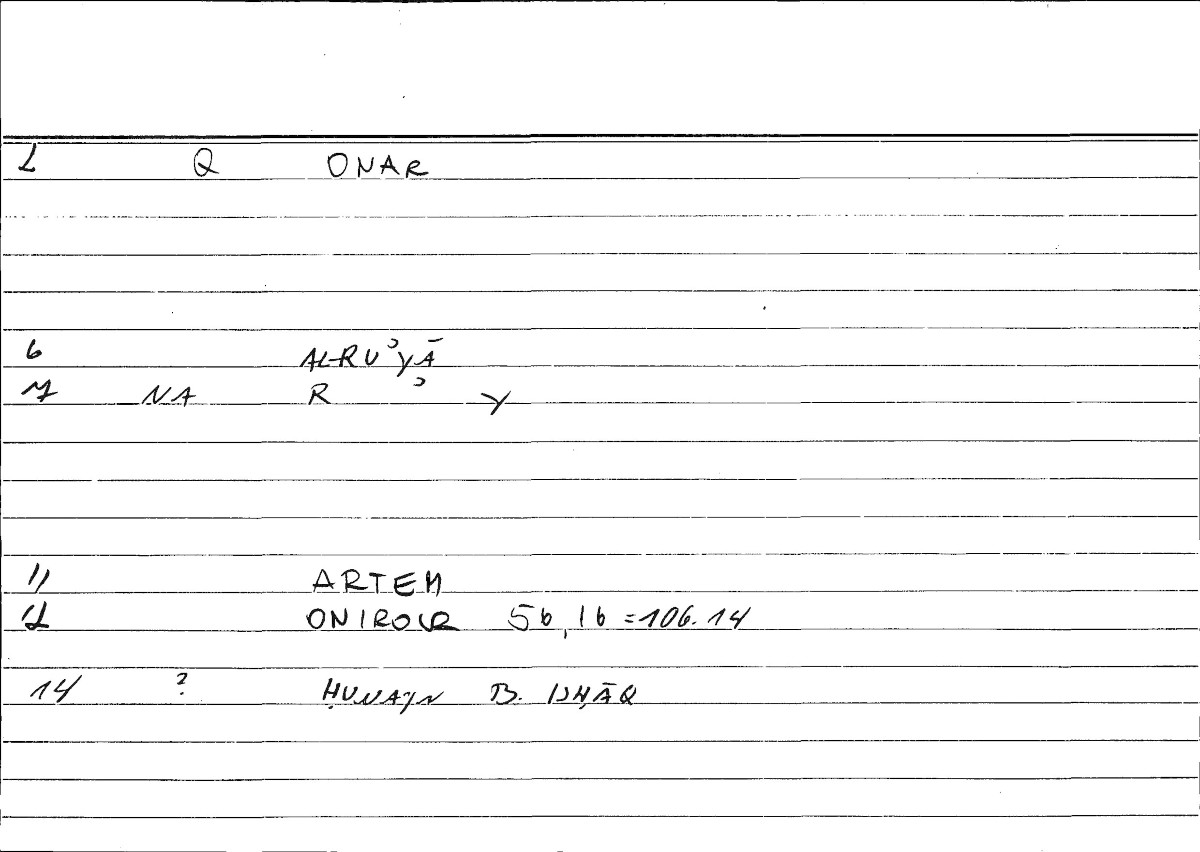 1 Q ONAR
6 AL-RUʾYĀ
7 NA R ʾ Y
11 ARTEM
12 ONIROCR 56,16=106.14
14 ? ḤUNAYN B. ISḤĀQ